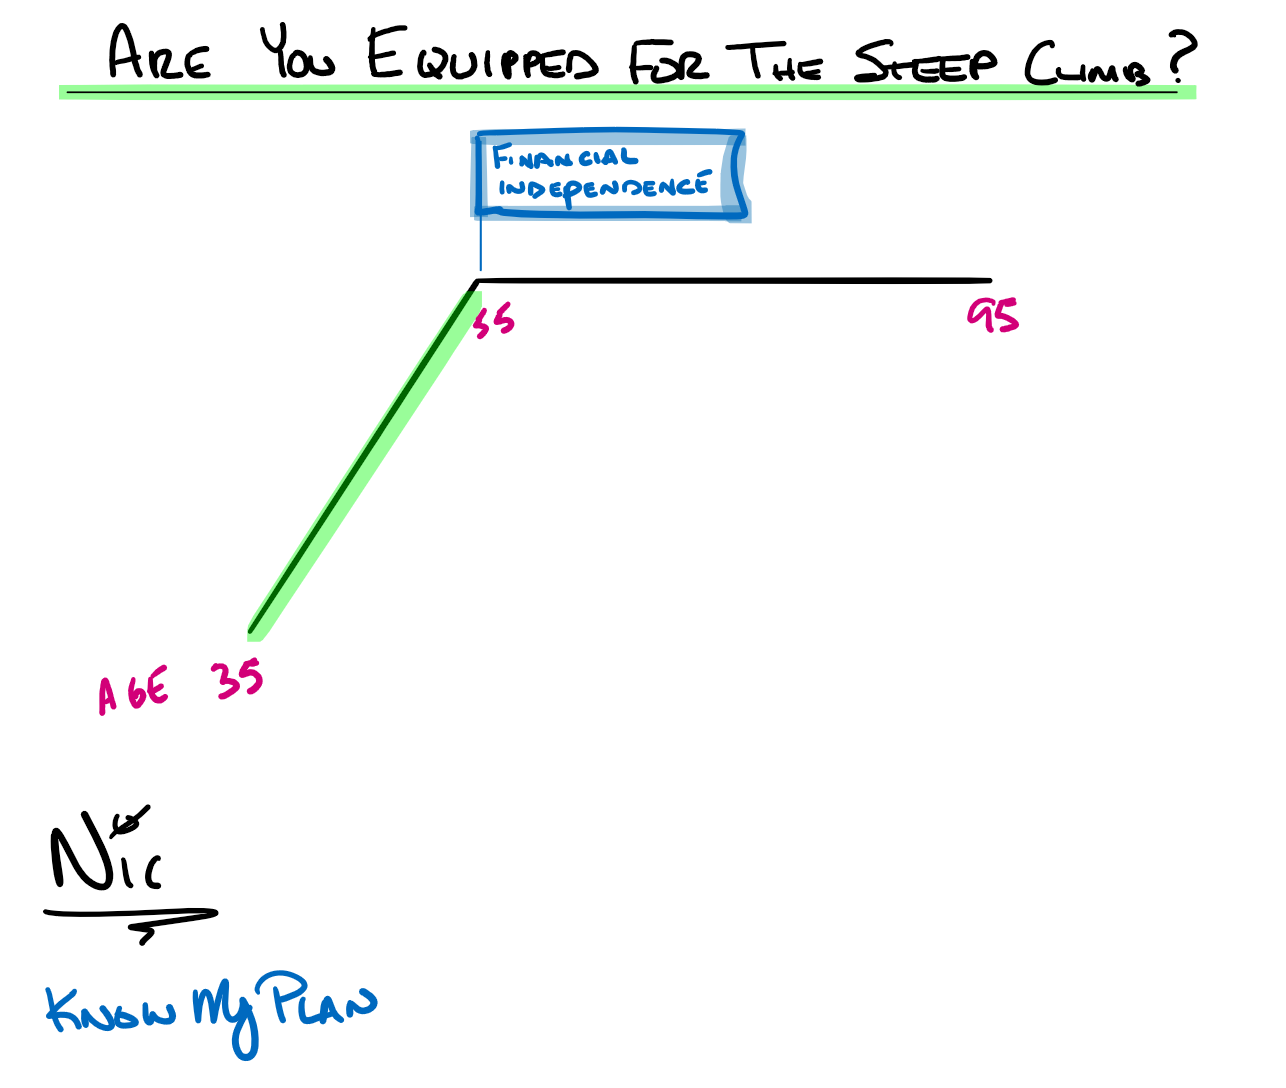 ARE YOU EQUIPPED FOR THE STEEP CLIMB?
FINANCIAL
INDEPENDENCE
55
95
AGE 35
Nic
KNOW My PLAN